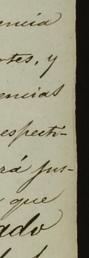 encia
rtes, y
encias
respecti-
rá jus-
y que
ado